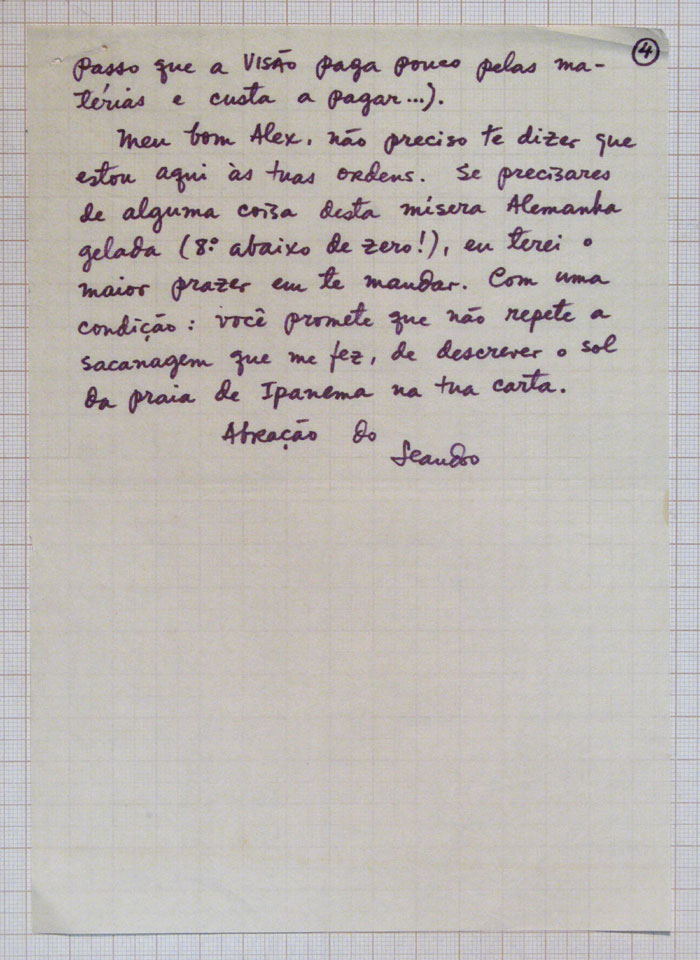 4
passo que a VISÃO paga pouco pelas ma-
térias e custa a pagar...).
Meu bom Alex, não preciso te dizer que
estou aqui às tuas ordens. Se precisares
de alguma coisa desta mísera Alemanha
gelada (8º abaixo de zero!), eu terei o
maior prazer em te mandar. Com uma
condição: você promete que não repete a
sacanagem que me fez, de descrever o sol
da praia de Ipanema na tua carta.
Abração do
Leandro